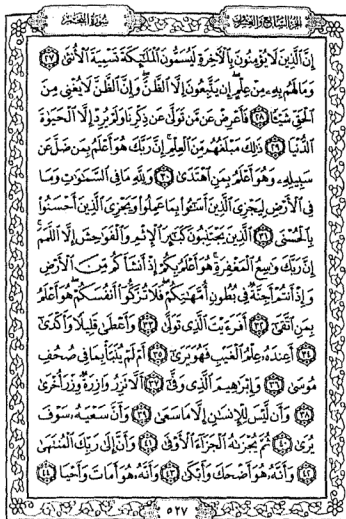 الجزء السابع والعشرون سورة النجم
إِنَّ الَّذِينَ لَا يُؤْمِنُونَ بِالْآخِرَةِ لَيُسَمُّونَ الْمَلَائِكَةَ تَسْمِيَةَ الْأُنثَىٰ ٢٧
وَمَا لَهُم بِهِ مِنْ عِلْمٍ إِن يَتَّبِعُونَ إِلَّا الظَّنَّ وَإِنَّ الظَّنَّ لَا يُغْنِي مِنَ
الْحَقِّ شَيْئًا ٢٨ فَأَعْرِضْ عَن مَّن تَوَلَّىٰ عَن ذِكْرِنَا وَلَمْ يُرِدْ إِلَّا الْحَيَوٰةَ
الدُّنْيَا ٢٩ ذَٰلِكَ مَبْلَغُهُم مِّنَ الْعِلْمِ إِنَّ رَبَّكَ هُوَ أَعْلَمُ بِمَن ضَلَّ عَن
سَبِيلِهِ وَهُوَ أَعْلَمُ بِمَنِ اهْتَدَىٰ ٣٠ وَلِلَّهِ مَا فِي السَّمَٰوَٰتِ وَمَا
فِي الْأَرْضِ لِيَجْزِيَ الَّذِينَ أَسَٰٓئُوا بِمَا عَمِلُوا وَيَجْزِيَ الَّذِينَ أَحْسَنُوا
بِالْحُسْنَى ٣١ الَّذِينَ يَجْتَنِبُونَ كَبَٰٓئِرَ الْإِثْمِ وَالْفَوَٰحِشَ إِلَّا اللَّمَمَ
إِنَّ رَبَّكَ وَٰسِعُ الْمَغْفِرَةِ هُوَ أَعْلَمُ بِكُمْ إِذْ أَنشَأَكُم مِّنَ الْأَرْضِ
وَإِذْ أَنتُمْ أَجِنَّةٌ فِي بُطُونِ أُمَّهَٰتِكُمْ فَلَا تُزَكُّوا أَنفُسَكُمْ هُوَ أَعْلَمُ
بِمَنِ اتَّقَىٰ ٣٢ أَفَرَءَيْتَ الَّذِي تَوَلَّىٰ ٣٣ وَأَعْطَىٰ قَلِيلًا وَأَكْدَىٰ
٣٤ أَعِندَهُ عِلْمُ الْغَيْبِ فَهُوَ يَرَىٰ ٣٥ أَمْ لَمْ يُنَبَّأْ بِمَا فِي صُحُفِ
مُوسَىٰ ٣٦ وَإِبْرَٰهِيمَ الَّذِي وَفَّىٰ ٣٧ أَلَّا تَزِرُ وَازِرَةٌ وِزْرَ أُخْرَىٰ
٣٨ وَأَن لَّيْسَ لِلْإِنسَٰنِ إِلَّا مَا سَعَىٰ ٣٩ وَأَنَّ سَعْيَهُ سَوْفَ
يُرَىٰ ٤٠ ثُمَّ يُجْزَىٰهُ الْجَزَآءَ الْأَوْفَىٰ ٤١ وَأَنَّ إِلَىٰ رَبِّكَ الْمُنتَهَىٰ
٤٢ وَأَنَّهُ هُوَ أَضْحَكَ وَأَبْكَىٰ ٤٣ وَأَنَّهُ هُوَ أَمَاتَ وَأَحْيَا ٤٤
٥٢٧